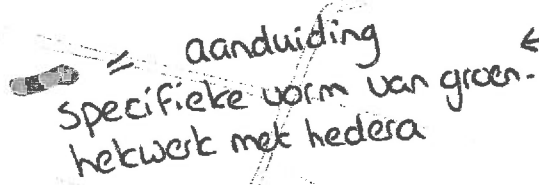 = aanduiding
specifieke vorm van groen-
hekwerk met hedera